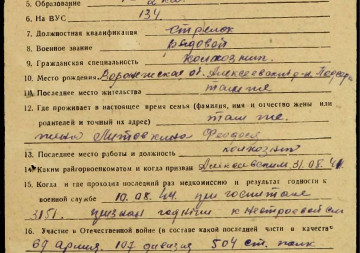 5. Образование
6. На ВУС 134
7. Должностная квалификация стрелок
8. Военное звание рядовой
9. Гражданская специальность колхозник
10. Место рождения Воронежская об. Алексеевский р-н
11. Последнее место жительства там же
12. Где проживает в настоящее время семья (фамилия, имя и отчество жены или
родителей и точный их адрес) там же,
жена
13. Последнее место работы и должность колхозник
14. Каким райгорвоенкоматом и когда призван Алексеевским 31.08.41
15. Когда и где проходил последний раз медкомиссию и результат годности к
военной службе 10.08.44 при госпитале
3151. признан годным к нестроевой сл
16. Участие в Отечественной войне (в составе какой последней части и качестве
69 армия. 107 дивизия 504 ст. полк